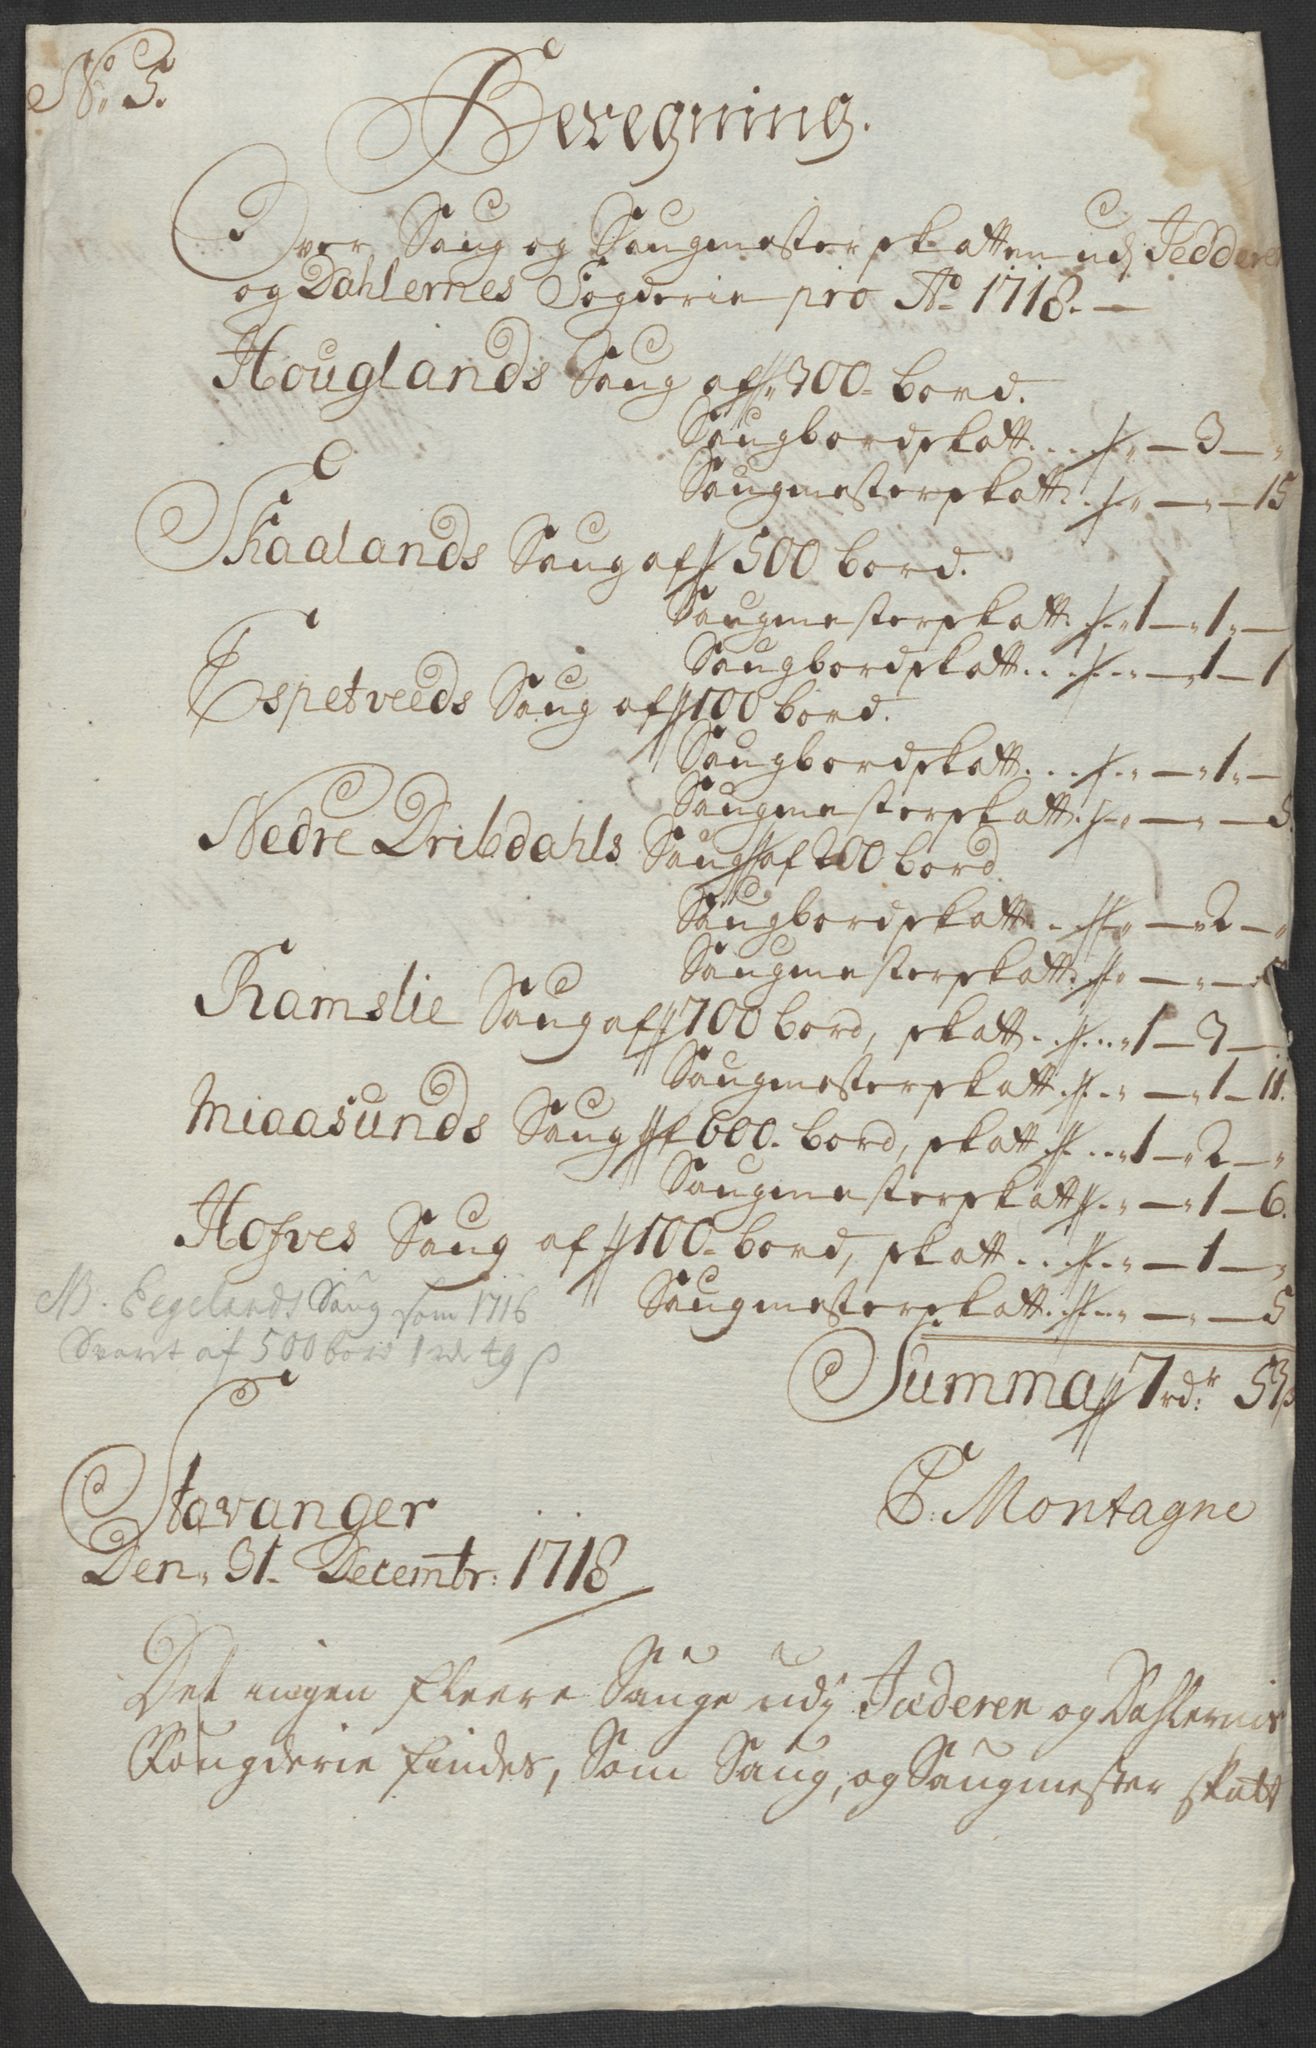 No. 5.
Beregning.
Over Saug og Saugmesterskatten udj Jedderen
og Dahlernes Fogderie pro Ao 1718. —
Houglands Saug af 300 bord.
Saugbordskatt . . . — 3 — "
Saugmesterskatt . . — " — 15
Skaalands Saug af 500 bord.
Saugmesterskatt . . 1 — 1 —
Saugbordskatt . . . — 1 — 1
Espetveeds Saug af 100 bord.
Saugbordskatt . . . — 1 —
Saugmesterskatt . . — " — 5.
Nedre Dribdahls Saug af 200 bord.
Saugbordskatt . . — 2 — "
Saugmesterskatt . . — " —
Ramslie Saug af 700 bord, skatt . . 1 — 3 —
Saugmesterskatt . . — 1 — 11.
Miaasunds Saug af 600 bord, skatt . . 1 — 2 — "
Saugmesterskatt . . — 1 — 6.
Hofves Saug af 100 bord, skatt . . . — 1 — "
Saugmesterskatt . . — " — 5
NB. Eegelands Saug som 1716
Svaret af 500 bord 1 rd 49 ß
Summa 7 rdr 53 ß
Stavanger
Den 31 Decembr: 1718
C: Montagne
Det ingen fleere Sauge udj Jæderen og Dahlernis
Fougderie findes, Som Saug, og Saugmester skatt